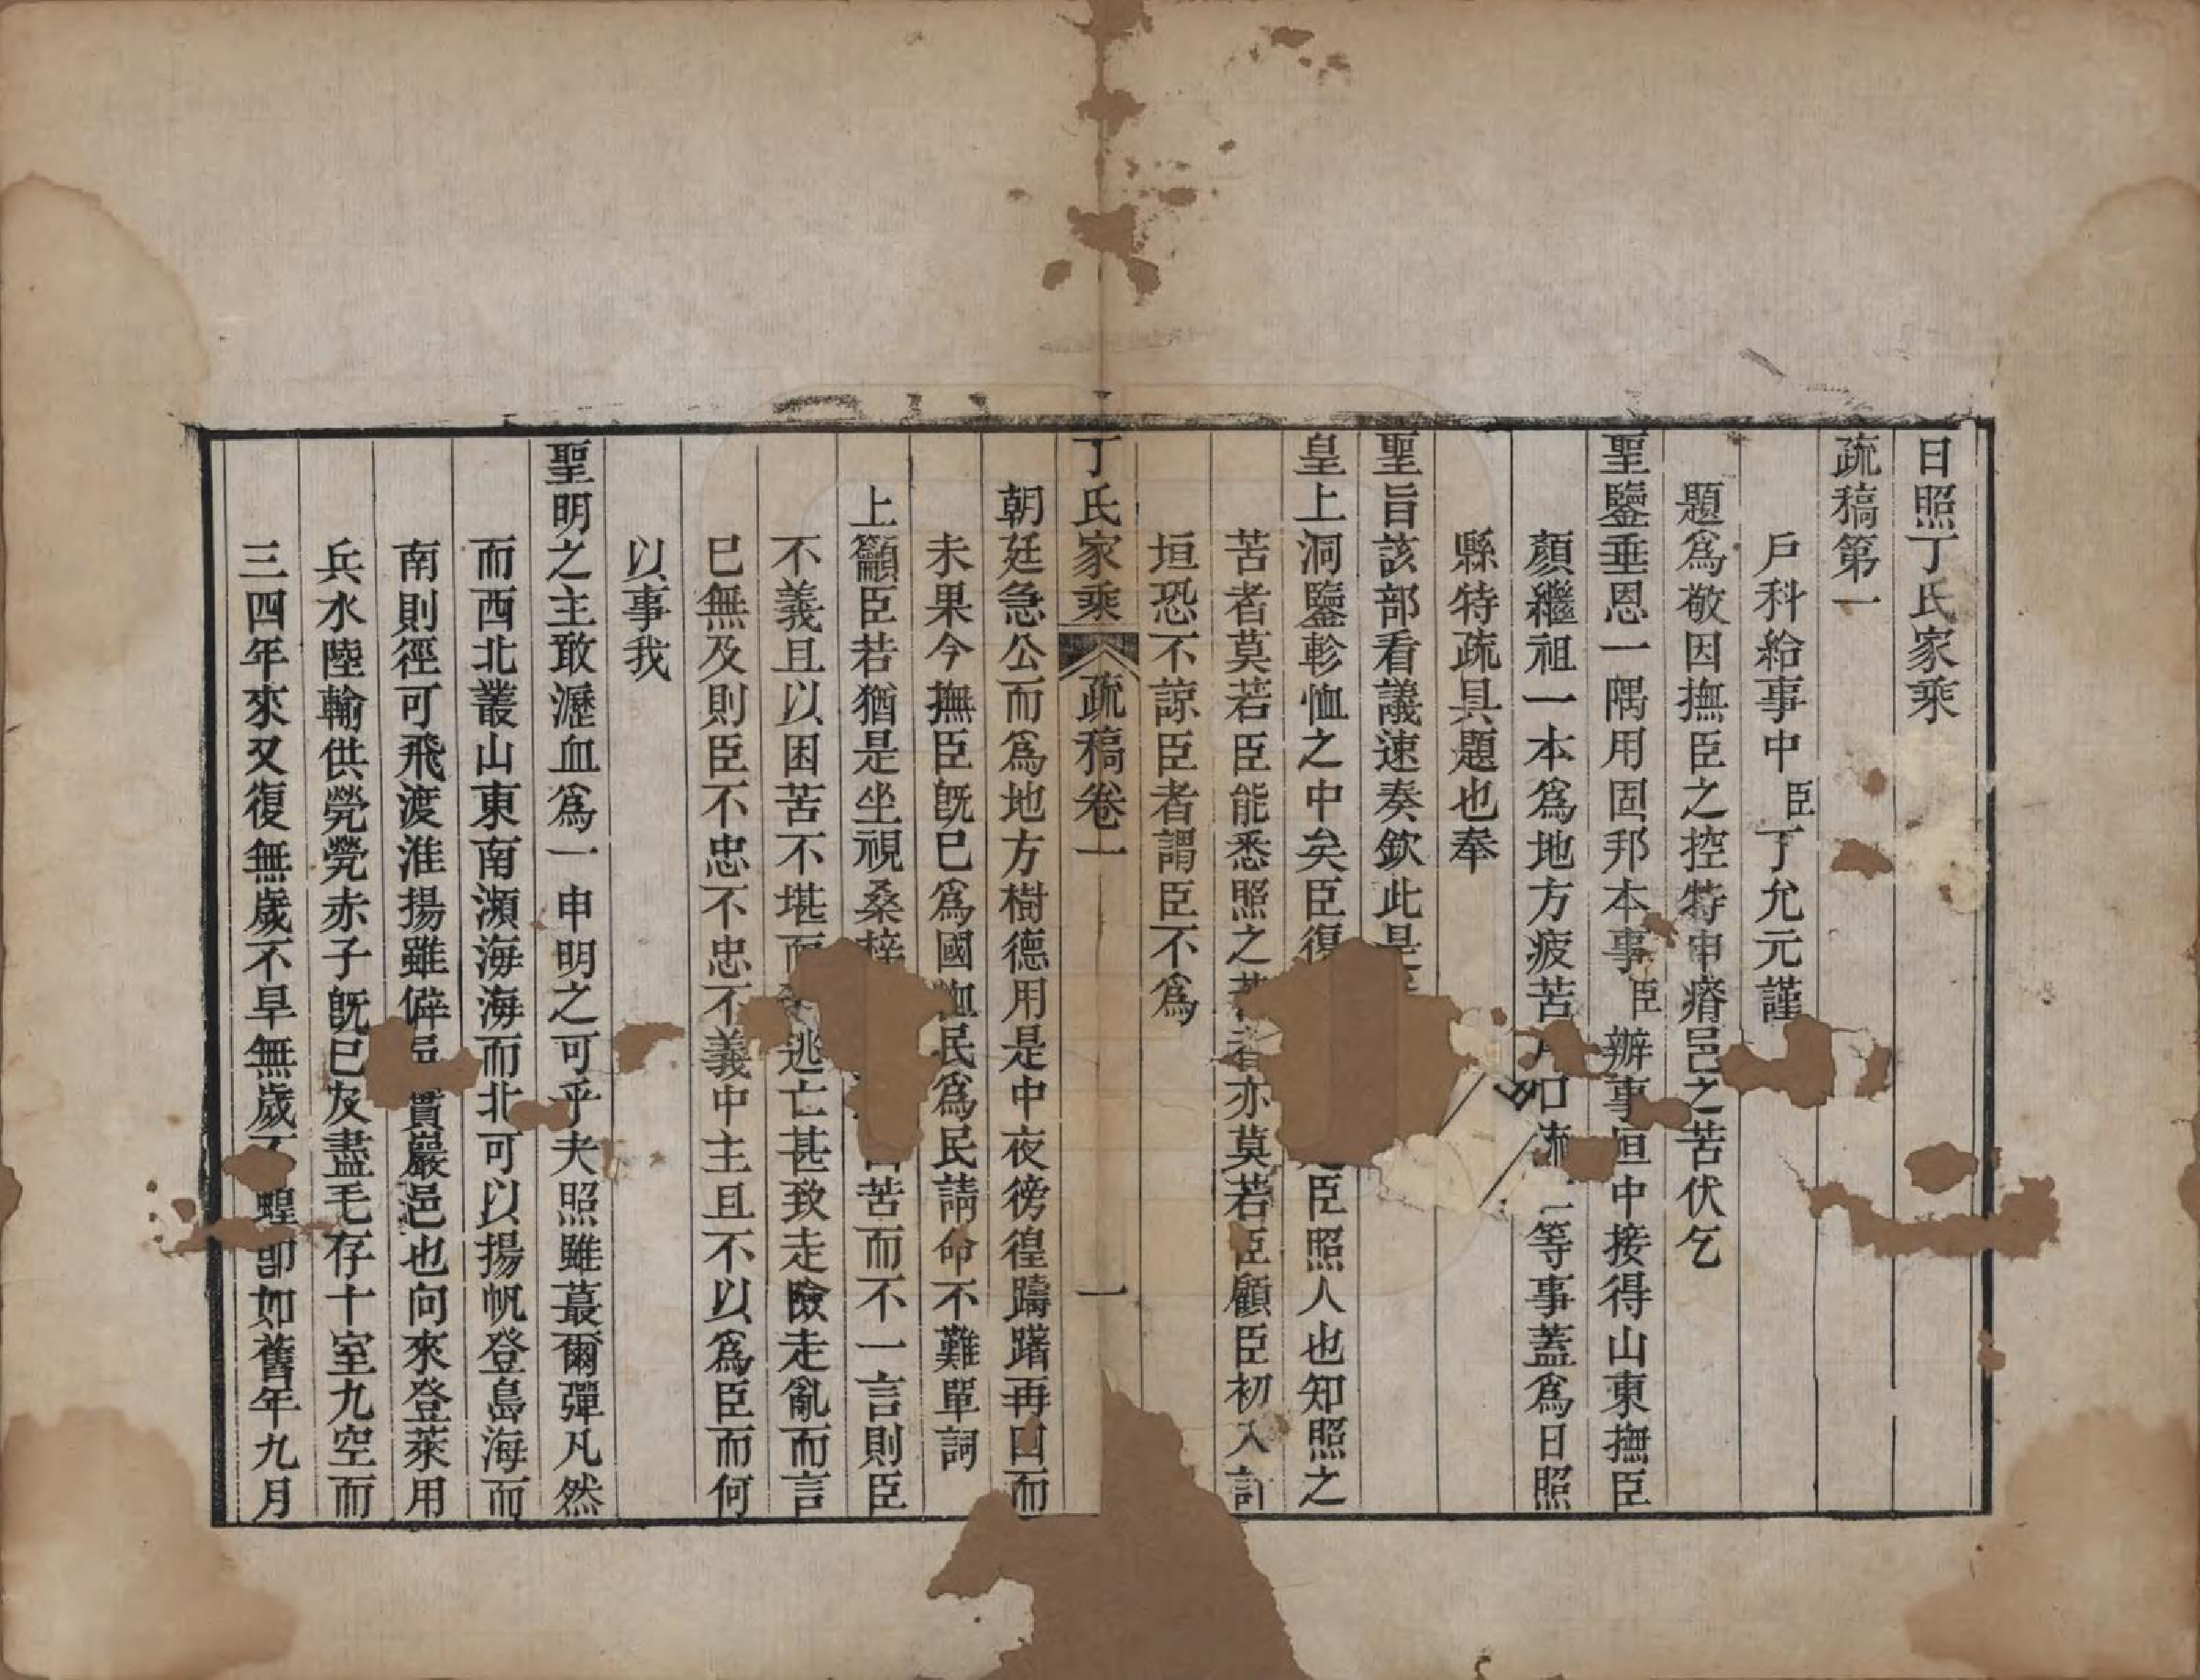 日照丁氏家乘
疏稿第一
戶科給事中臣丁允元謹
題爲敬因撫臣之控特申瘠邑之苦伏乞
聖鑒垂恩一隅用固邦本事臣辦事垣中接得山東撫臣
顏繼祖一本爲地方疲苦戶口流等事蓋爲日照
縣特疏具題也奉
聖旨該部看議速奏欽此是
皇上洞鑒軫恤之中矣臣復臣照人也知照之
苦者莫若臣能悉照之苦者亦莫若臣顧臣初入計
垣恐不諒臣者謂臣不爲
丁氏家乘 疏稿卷一 一
朝廷急公而爲地方樹德用是中夜徬徨躊躇再四而
未果今撫臣旣已爲國恤民爲民請命不難單詞
上籲臣若猶是坐視桑梓苦而不一言則臣
不義且以困苦不堪而逃亡甚致走險走亂而言
已無及則臣不忠不忠不義中主且不以爲臣而何
以事我
聖明之主敢瀝血爲一申明之可乎夫照雖蕞爾彈凡然
而西北叢山東南瀕海海而北可以揚帆登島海而
南則徑可飛渡淮揚雖僻邑實巖邑也向來登萊用
兵水陸輸供煢煢赤子旣已友盡毛存十室九空而
三四年來又復無歲不旱無歲不蝗卽如舊年九月